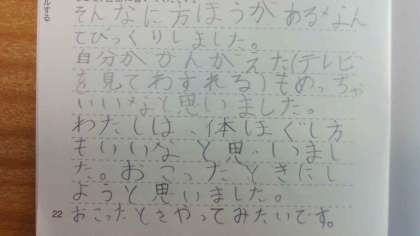 そんなに方ほうがあるなん
てびっくりしました。
自分がかんがえた(テレビ
を見てわすれる)もめっちゃ
いいなと思いました。
わたしは、体ほぐし方
もいいなと思いまし
た。おこったときにし
ようと思いました。
22 おこったときやってみたいです。